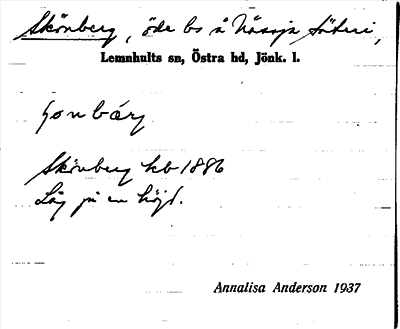 Skönberg, öde bs å Nässja säteri,
Lemnhults sn, Östra hd, Jönk. l.
Skönberg kb 1886
Låg på en höjd.
Annalisa Anderson 1937